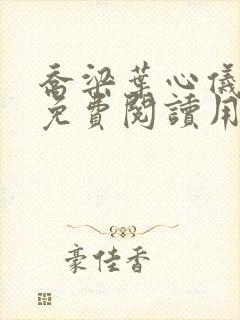 喬梁葉心儀
免費閱讀用
豪佳香